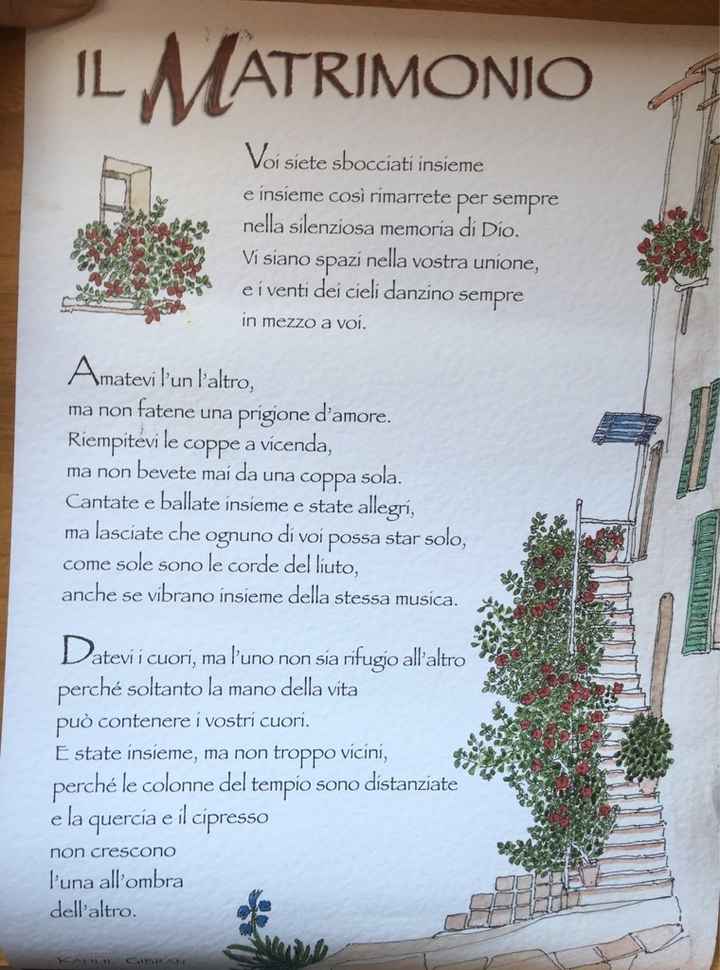 IL MATRIMONIO
Voi siete sbocciati insieme
e insieme così rimarrete per sempre
nella silenziosa memoria di Dio.
Vi siano spazi nella vostra unione,
e i venti dei cieli danzino sempre
in mezzo a voi.
Amatevi l'un l'altro,
ma non fatene una prigione d'amore.
Riempitevi le coppe a vicenda,
ma non bevete mai da una coppa sola.
Cantate e ballate insieme e state allegri,
ma lasciate che ognuno di voi possa star solo,
come sole sono le corde del liuto,
anche se vibrano insieme della stessa musica.
Datevi i cuori, ma l'uno non sia rifugio all'altro
perché soltanto la mano della vita
può contenere i vostri cuori.
E state insieme, ma non troppo vicini,
perché le colonne del tempio sono distanziate
e la quercia e il cipresso
non crescono
l'una all'ombra
dell'altro.
KAHLIL GIBRAN